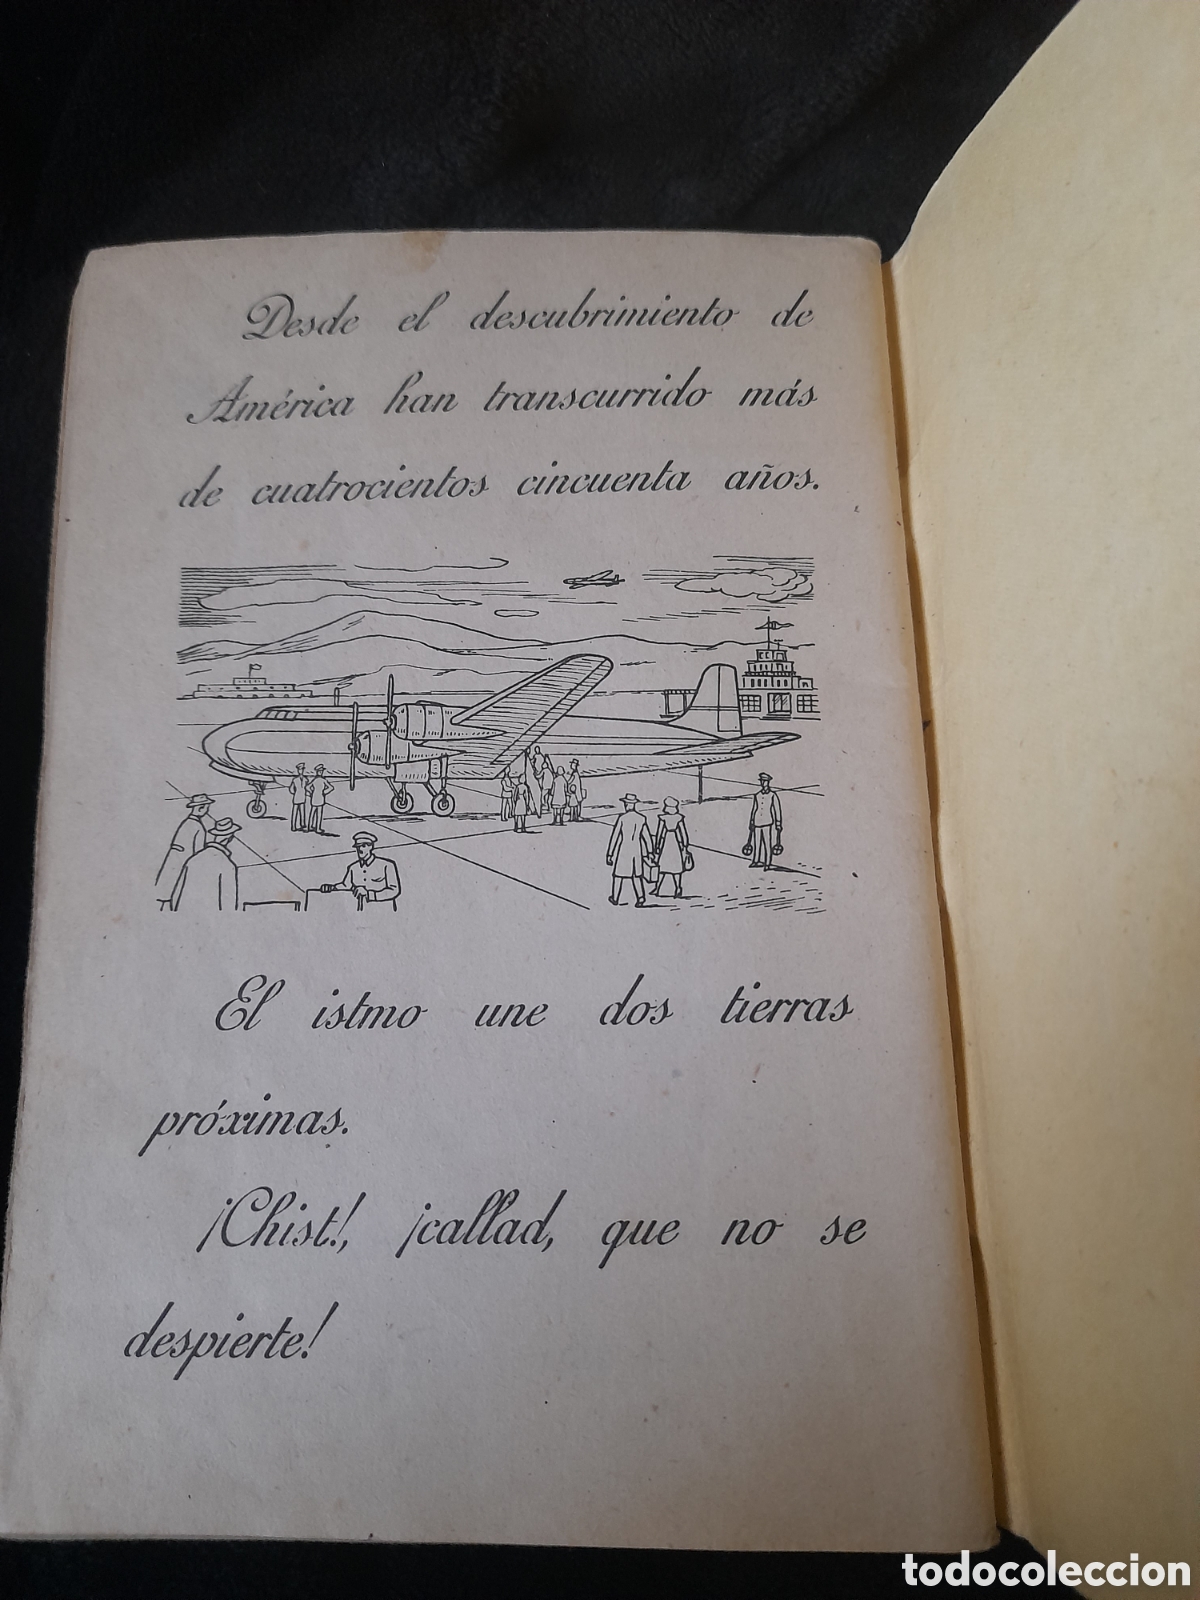 Desde el descubrimiento de
América han transcurrido más
de cuatrocientos cincuenta años.
El istmo une dos tierras
próximas.
¡Chist!, ¡callad, que no se
despierte!
todocoleccion